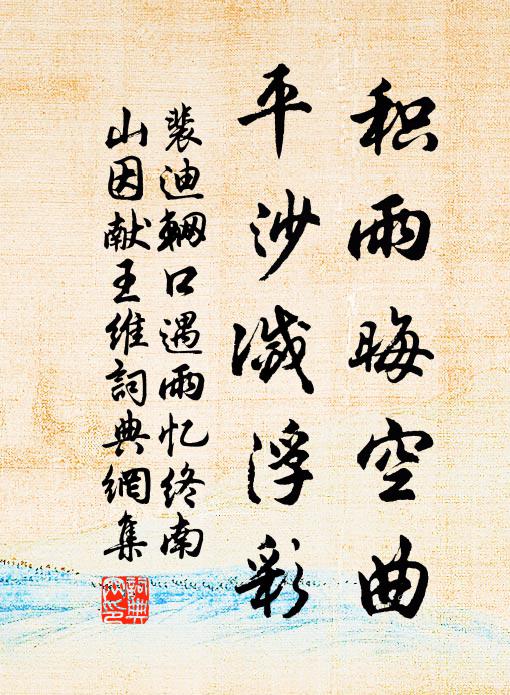 积雨晦空曲
平沙滅浮彩
裴迪輞口遇雨忆终南
山因献王维詞典網集